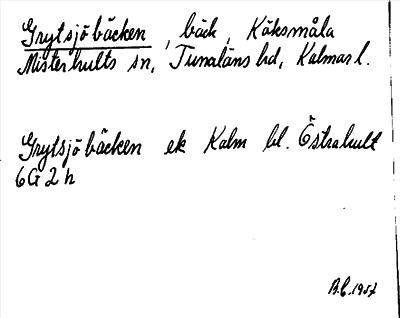 Grytsjöbäcken, bäck, Käksmåla
Misterhults sn, Tunaläns hd, Kalmar l.
Grytsjöbäcken ek Kalm bl. Östrahult
6G2h
B.C. 1957